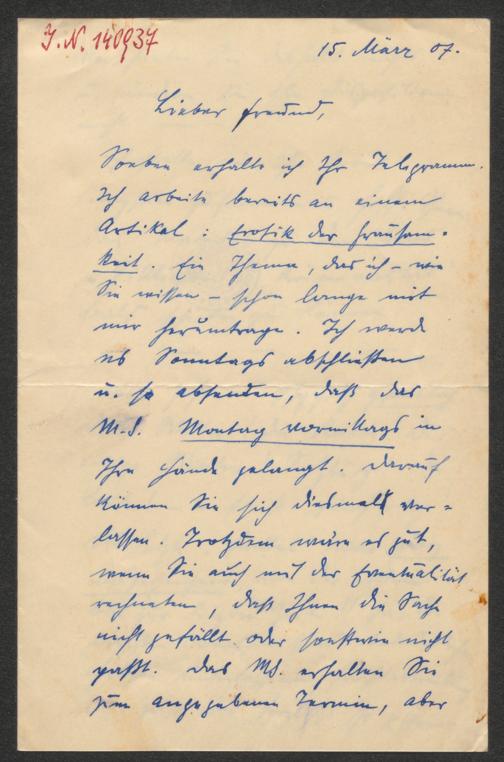 J. N. 140937
15. März 07.
Lieber Freund,
Soeben erhalte ich Ihr Telegramm.
Ich arbeite bereits an einem
Artikel: Erotik der Grausam-
keit. Ein Thema, das ich – wie
Sie wissen – schon lange mit
mir herumtrage. Ich werde
es Sonntags abschließen
u. so absenden, daß das
M.S. Montag vormittags in
Ihre Hände gelangt. Darauf
können Sie sich diesmal ver-
lassen. Trotzdem wäre es gut,
wenn Sie auch mit der Eventualität
rechneten, daß Ihnen die Sache
nicht gefällt oder sonstwie nicht
paßt. Das MS. erhalten Sie
zum angegebenen Termin, aber